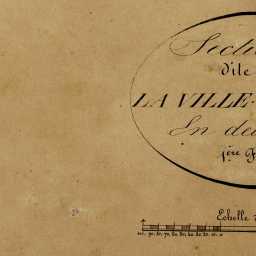 Secti
d'île
LA VILLE-
En deu
1ère F
Echelle d